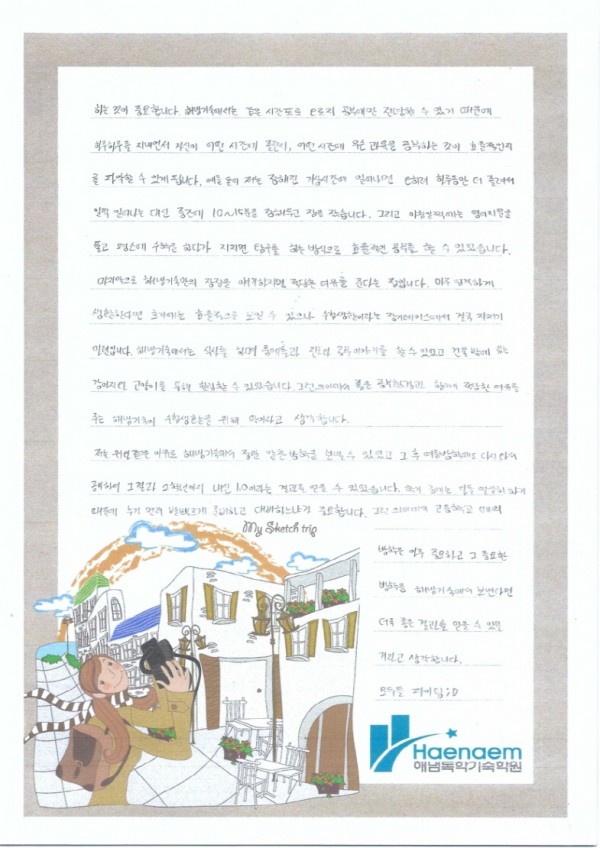 하는 것이 중요합니다. 해냄기숙에서는 같은 시간표로 오로지 공부에만 전념할 수 있기 때문에
하루하루를 지내면서 자신이 어떤 시간에 졸린지, 어떤 시간에 무슨 과목을 공부하는 것이 효율적인지
를 파악할 수 있게 됩니다. 예를 들어 저는 정해진 기상시간에 일어나면 오히려 하루동안 더 졸려서
일찍 일어나는 대신 중간에 10~15분을 정해두고 잠을 잤습니다. 그리고 아침일찍에는 영어지문을
풀고 평소에 수학을 하다가 지치면 탐구를 하는 방식으로 효율적인 공부를 할 수 있었습니다.
마지막으로 해냄기숙만의 장점을 얘기하자면 적당한 여유를 준다는 점입니다. 너무 빡빡하게
생활한다면 초기에는 효율적으로 보일 수 있으나 수험생활이라는 장거리레이스에서 결국 지치기
마련입니다. 해냄기숙에서는 식사를 하며 친구들과 공부이야기를 할 수 있었고 건물 밖에 있는
강아지랑 고양이를 통해 힐링할 수 있었습니다. 그런 의미에서 좋은 공부환경과 함께 적당한 여유를
주는 해냄기숙이 수험생들을 위해 생각합니다.
저는 위와 같은 이유로 해냄기숙에서 정말 알찬 방학을 보낼 수 있었고 그 후 여름방학에도 다시 와서
공부하여 그 결과 2학년에서 내신 1.0이라는 결과를 얻을 수 있었습니다. 모두 열심히 하기
때문에 누가 먼저 발빠르게 준비하고 대비하느냐가 중요합니다. 그런 의미에서 고등학교
My Sketch trip
방학은 매우 중요하고 그 중요한
방학을 해냄기숙에서 보낸다면
더욱 좋은 결과를 얻을 수 있을
거라고 생각합니다.
모두들 파이팅:D
Haenaem
해냄독학기숙학원